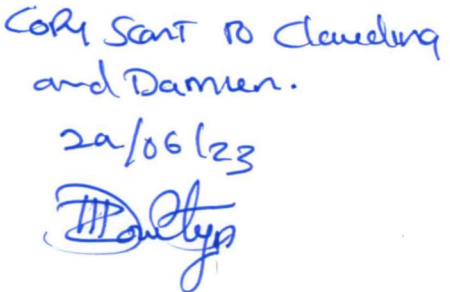 Copy Scant to Claudina
and Damien.
29/06/23